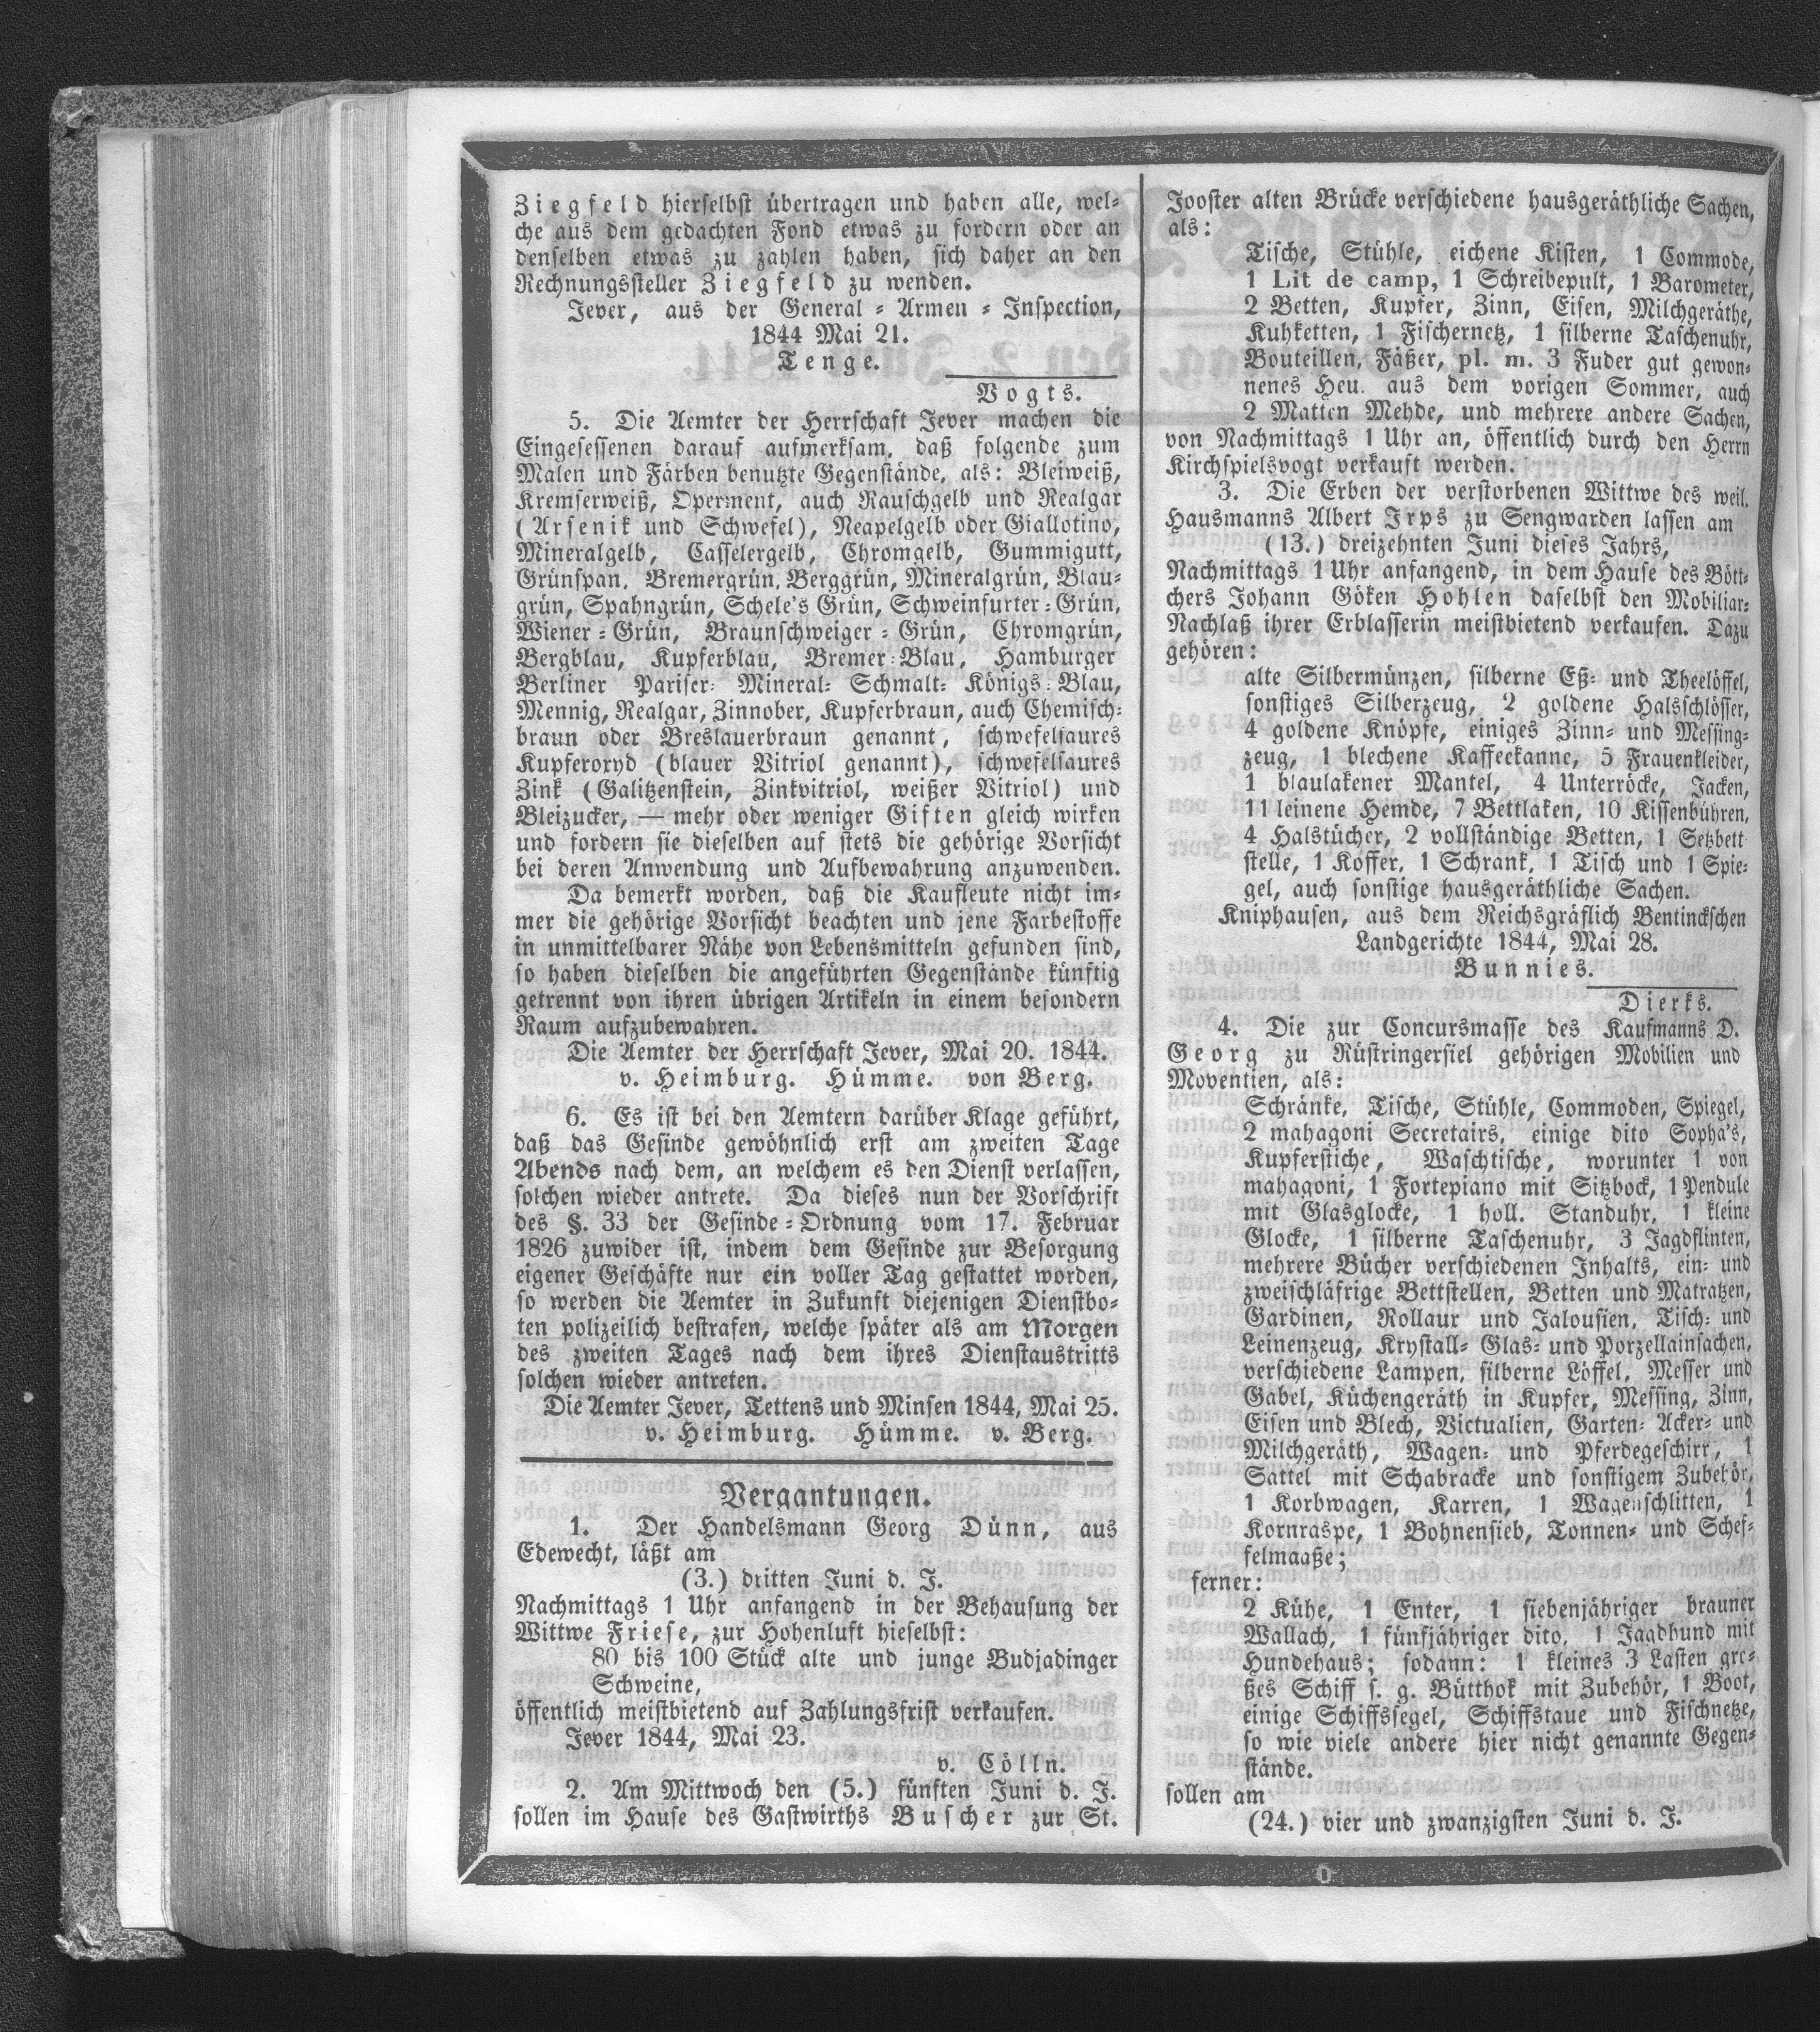 Ziegfeld hierselbst übertragen und haben alle, wel-
che aus dem gedachten Fond etwas zu fordern oder an
denselben etwas zu zahlen haben, sich daher an den
Rechnungssteller Ziegfeld zu wenden.
Jever, aus der General-Armen-Inspection,
1844 Mai 21.
Tenge.
Vogts.
5. Die Aemter der Herrschaft Jever machen die
Eingesessenen darauf aufmerksam, daß folgende zum
Malen und Färben benutzte Gegenstände, als: Bleiweiß,
Kremserweiß, Operment, auch Rauschgelb und Realgar
(Arsenik und Schwefel), Neapelgelb oder Giallotino,
Mineralgelb, Casselergelb, Chromgelb, Gummigutt,
Grünspan, Bremergrün, Berggrün, Mineralgrün, Blau-
grün, Spahngrün, Schele's Grün, Schweinfurter-Grün,
Wiener-Grün, Braunschweiger-Grün, Chromgrün,
Bergblau, Kupferblau, Bremer-Blau, Hamburger
Berliner Pariser- Mineral- Schmalt- Königs-Blau,
Mennig, Realgar, Zinnober, Kupferbraun, auch Chemisch-
braun oder Breslauerbraun genannt, schwefelsaures
Kupferoxyd (blauer Vitriol genannt), schwefelsaures
Zink (Galitzenstein, Zinkvitriol, weißer Vitriol) und
Bleizucker, — mehr oder weniger Giften gleich wirken
und fordern sie dieselben auf stets die gehörige Vorsicht
bei deren Anwendung und Aufbewahrung anzuwenden.
Da bemerkt worden, daß die Kaufleute nicht im-
mer die gehörige Vorsicht beachten und jene Farbestoffe
in unmittelbarer Nähe von Lebensmitteln gefunden sind,
so haben dieselben die angeführten Gegenstände künftig
getrennt von ihren übrigen Artikeln in einem besondern
Raum aufzubewahren.
Die Aemter der Herrschaft Jever, Mai 20. 1844.
v. Heimburg. Hümme. von Berg.
6. Es ist bei den Aemtern darüber Klage geführt,
daß das Gesinde gewöhnlich erst am zweiten Tage
Abends nach dem, an welchem es den Dienst verlassen,
solchen wieder antrete. Da dieses nun der Vorschrift
des §. 33 der Gesinde-Ordnung vom 17. Februar
1826 zuwider ist, indem dem Gesinde zur Besorgung
eigener Geschäfte nur ein voller Tag gestattet worden,
so werden die Aemter in Zukunft diejenigen Dienstbo-
ten polizeilich bestrafen, welche später als am Morgen
des zweiten Tages nach dem ihres Dienstaustritts
solchen wieder antreten.
Die Aemter Jever, Tettens und Minsen 1844, Mai 25.
v. Heimburg. Hümme. v. Berg.
Vergantungen.
1. Der Handelsmann Georg Dünn, aus
Edewecht, läßt am
(3.) dritten Juni d. J.
Nachmittags 1 Uhr anfangend in der Behausung der
Wittwe Friese, zur Hohenluft hieselbst:
80 bis 100 Stück alte und junge Budjadinger
Schweine,
öffentlich meistbietend auf Zahlungsfrist verkaufen.
Jever 1844, Mai 23.
v. Cölln.
2. Am Mittwoch den (5.) fünften Juni d. J.
sollen im Hause des Gastwirths Buscher zur St.
Jooster alten Brücke verschiedene hausgeräthliche Sachen,
als:
Tische, Stühle, eichene Kisten, 1 Commode,
1 Lit de camp, 1 Schreibepult, 1 Barometer,
2 Betten, Kupfer, Zinn, Eisen, Milchgeräthe,
Kuhketten, 1 Fischernetz, 1 silberne Taschenuhr,
Bouteillen, Fäßer, pl. m. 3 Fuder gut gewon-
nenes Heu aus dem vorigen Sommer, auch
2 Matten Mehde, und mehrere andere Sachen,
von Nachmittags 1 Uhr an, öffentlich durch den Herrn
Kirchspielsvogt verkauft werden.
3. Die Erben der verstorbenen Wittwe des weil.
Hausmanns Albert Irps zu Sengwarden lassen am
(13.) dreizehnten Juni dieses Jahrs,
Nachmittags 1 Uhr anfangend, in dem Hause des Bött-
chers Johann Göken Hohlen daselbst den Mobiliar-
Nachlaß ihrer Erblasserin meistbietend verkaufen. Dazu
gehören:
alte Silbermünzen, silberne Eß- und Theelöffel,
sonstiges Silberzeug, 2 goldene Halsschlösser,
4 goldene Knöpfe, einiges Zinn- und Messing-
zeug, 1 blechene Kaffeekanne, 5 Frauenkleider,
1 blaulakener Mantel, 4 Unterröcke, Jacken,
11 leinene Hemde, 7 Bettlaken, 10 Kissenbühren,
4 Halstücher, 2 vollständige Betten, 1 Setzbett-
stelle, 1 Koffer, 1 Schrank, 1 Tisch und 1 Spie-
gel, auch sonstige hausgeräthliche Sachen.
Kniphausen, aus dem Reichsgräflich Bentinckschen
Landgerichte 1844, Mai 28.
Bunnies.
Dierks.
4. Die zur Concursmasse des Kaufmanns D.
Georg zu Rüstringersiel gehörigen Mobilien und
Moventien, als:
Schränke, Tische, Stühle, Commoden, Spiegel,
2 mahagoni Secretairs, einige dito Sopha's,
Kupferstiche, Waschtische, worunter 1 von
mahagoni, 1 Fortepiano mit Sitzbock, 1 Pendule
mit Glasglocke, 1 holl. Standuhr, 1 kleine
Glocke, 1 silberne Taschenuhr, 3 Jagdflinten,
mehrere Bücher verschiedenen Inhalts, ein- und
zweischläfrige Bettstellen, Betten und Matratzen,
Gardinen, Rollaux und Jalousien, Tisch- und
Leinenzeug, Krystall- Glas- und Porzellainsachen,
verschiedene Lampen, silberne Löffel, Messer und
Gabel, Küchengeräth in Kupfer, Messing, Zinn,
Eisen und Blech, Victualien, Garten- Acker- und
Milchgeräth, Wagen- und Pferdegeschirr, 1
Sattel mit Schabracke und sonstigem Zubehör,
1 Korbwagen, Karren, 1 Wagenschlitten, 1
Kornraspe, 1 Bohnensieb, Tonnen- und Schef-
felmaaße;
ferner:
2 Kühe, 1 Enter, 1 siebenjähriger brauner
Wallach, 1 fünfjähriger dito, 1 Jagdhund mit
Hundehaus; sodann: 1 kleines 3 Lasten gro-
ßes Schiff s. g. Bütthok mit Zubehör, 1 Boot,
einige Schiffssegel, Schiffstaue und Fischnetze,
so wie viele andere hier nicht genannte Gegen-
stände.
sollen am
(24.) vier und zwanzigsten Juni d. J.